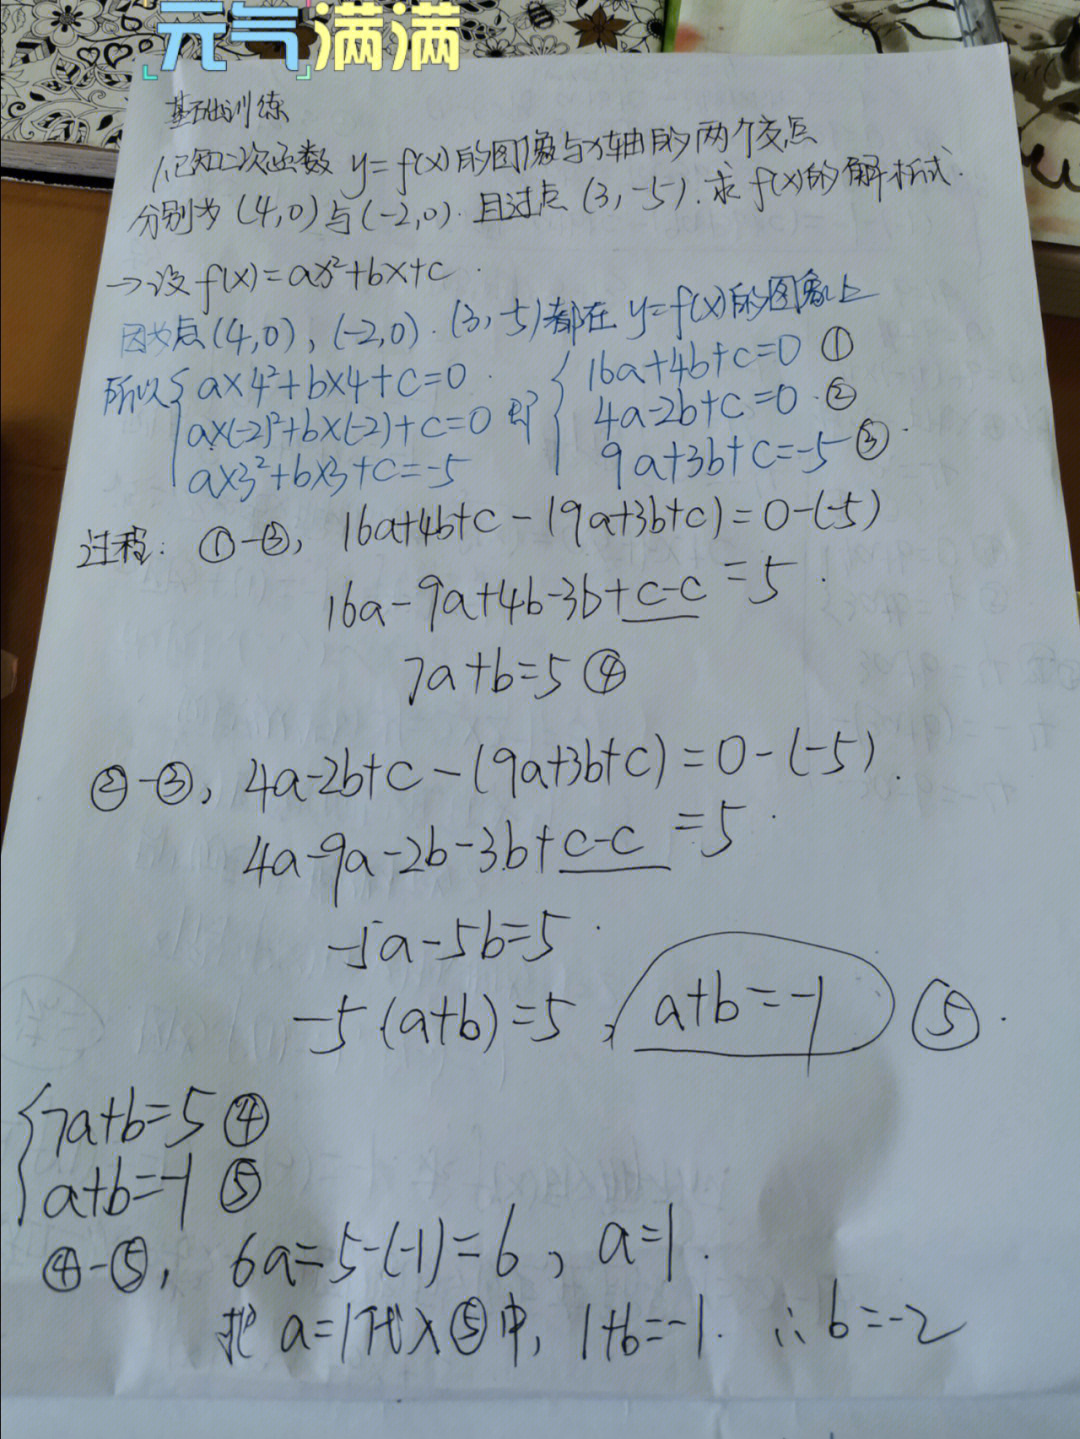 元气满满
基础训练
1.已知二次函数 y=f(x)的图像与x轴的两个交点
分别为(4,0)与(-2,0).且过点(3,-5).求f(x)的解析式.
→设f(x)=ax²+bx+c.
因为点(4,0),(-2,0).(3,-5)都在y=f(x)的图象上
所以{a×4²+b×4+c=0 16a+4b+c=0 ①
a×(-2)²+b×(-2)+c=0 即{4a-2b+c=0.②
a×3²+b×3+c=-5 9a+3b+c=-5③.
过程: ①-③, 16a+4b+c-(9a+3b+c)=0-(-5)
16a-9a+4b-3b+c-c=5.
7a+b=5④
②-③, 4a-2b+c-(9a+3b+c)=0-(-5).
4a-9a-2b-3b+c-c=5.
-5a-5b=5.
-5(a+b)=5, a+b=-1 ⑤.
{7a+b=5④
a+b=-1⑤
④-⑤, 6a=5-(-1)=6, a=1.
把a=1代入⑤中, 1+b=-1. ∴b=-2